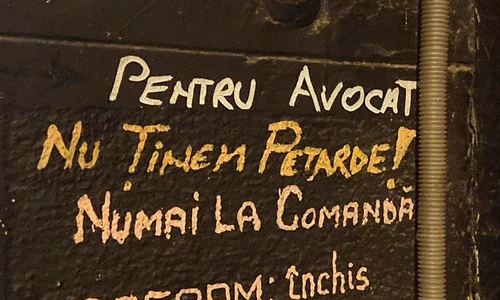 PENTRU AVOCAT
NU ȚINEM PETARDE!
NUMAI LA COMANDĂ
închis